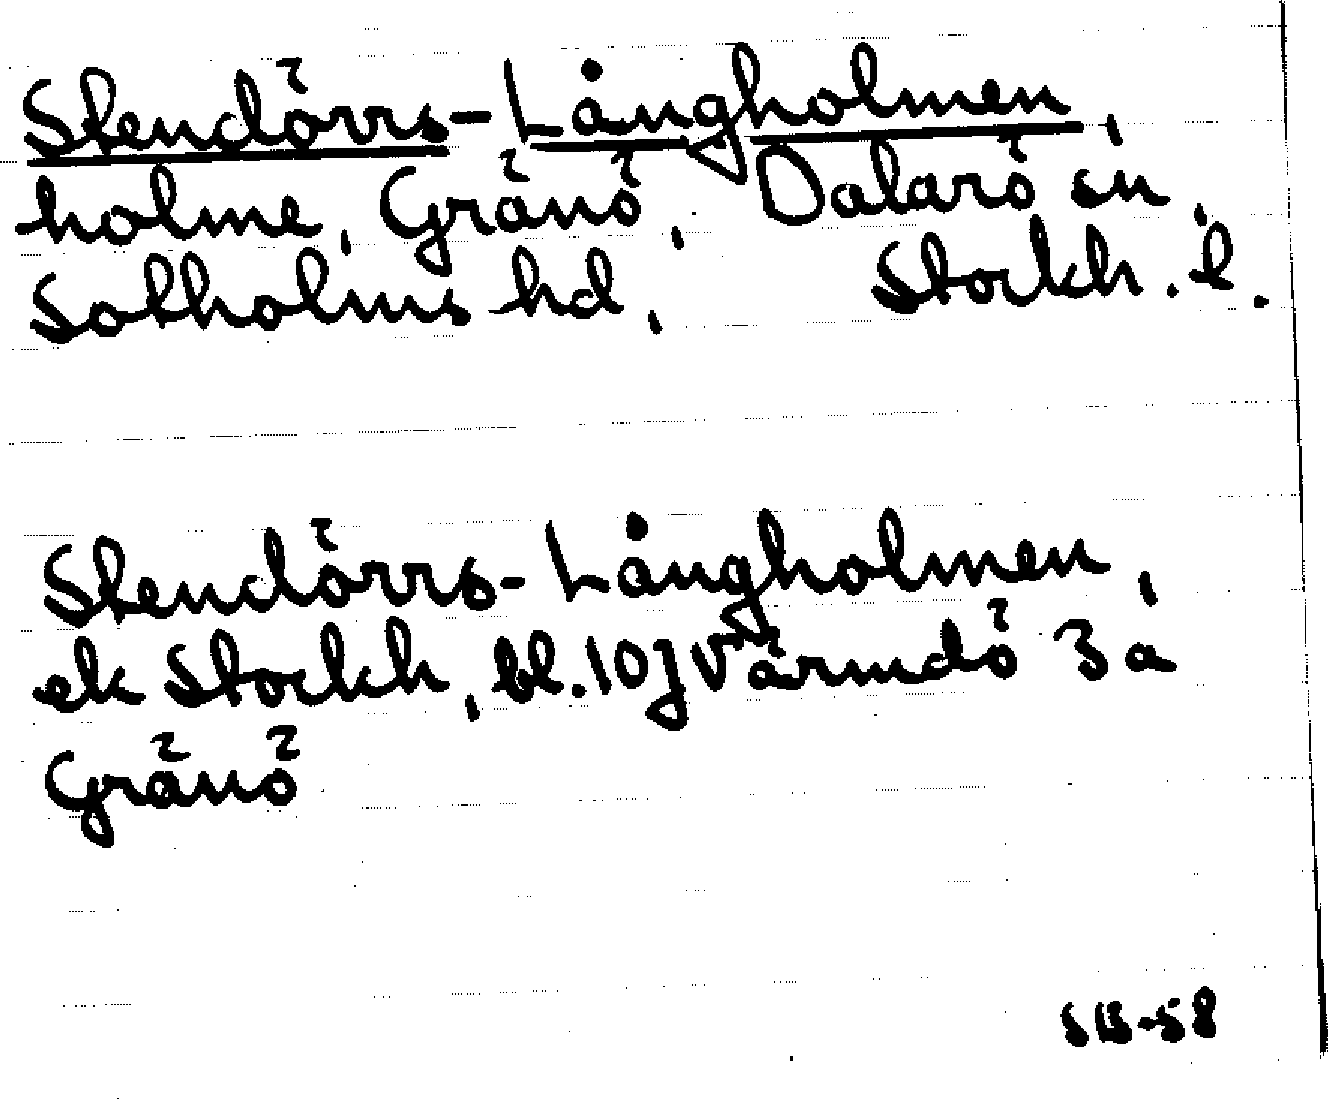 Stendörrs-Långholmen,
holme, Gränö, Dalarö sn,
Sotholms hd, Stockh. l.
Stendörrs-Långholmen,
ek Stockh, bl. 10J Värmdö 3 a
Gränö
SB-58